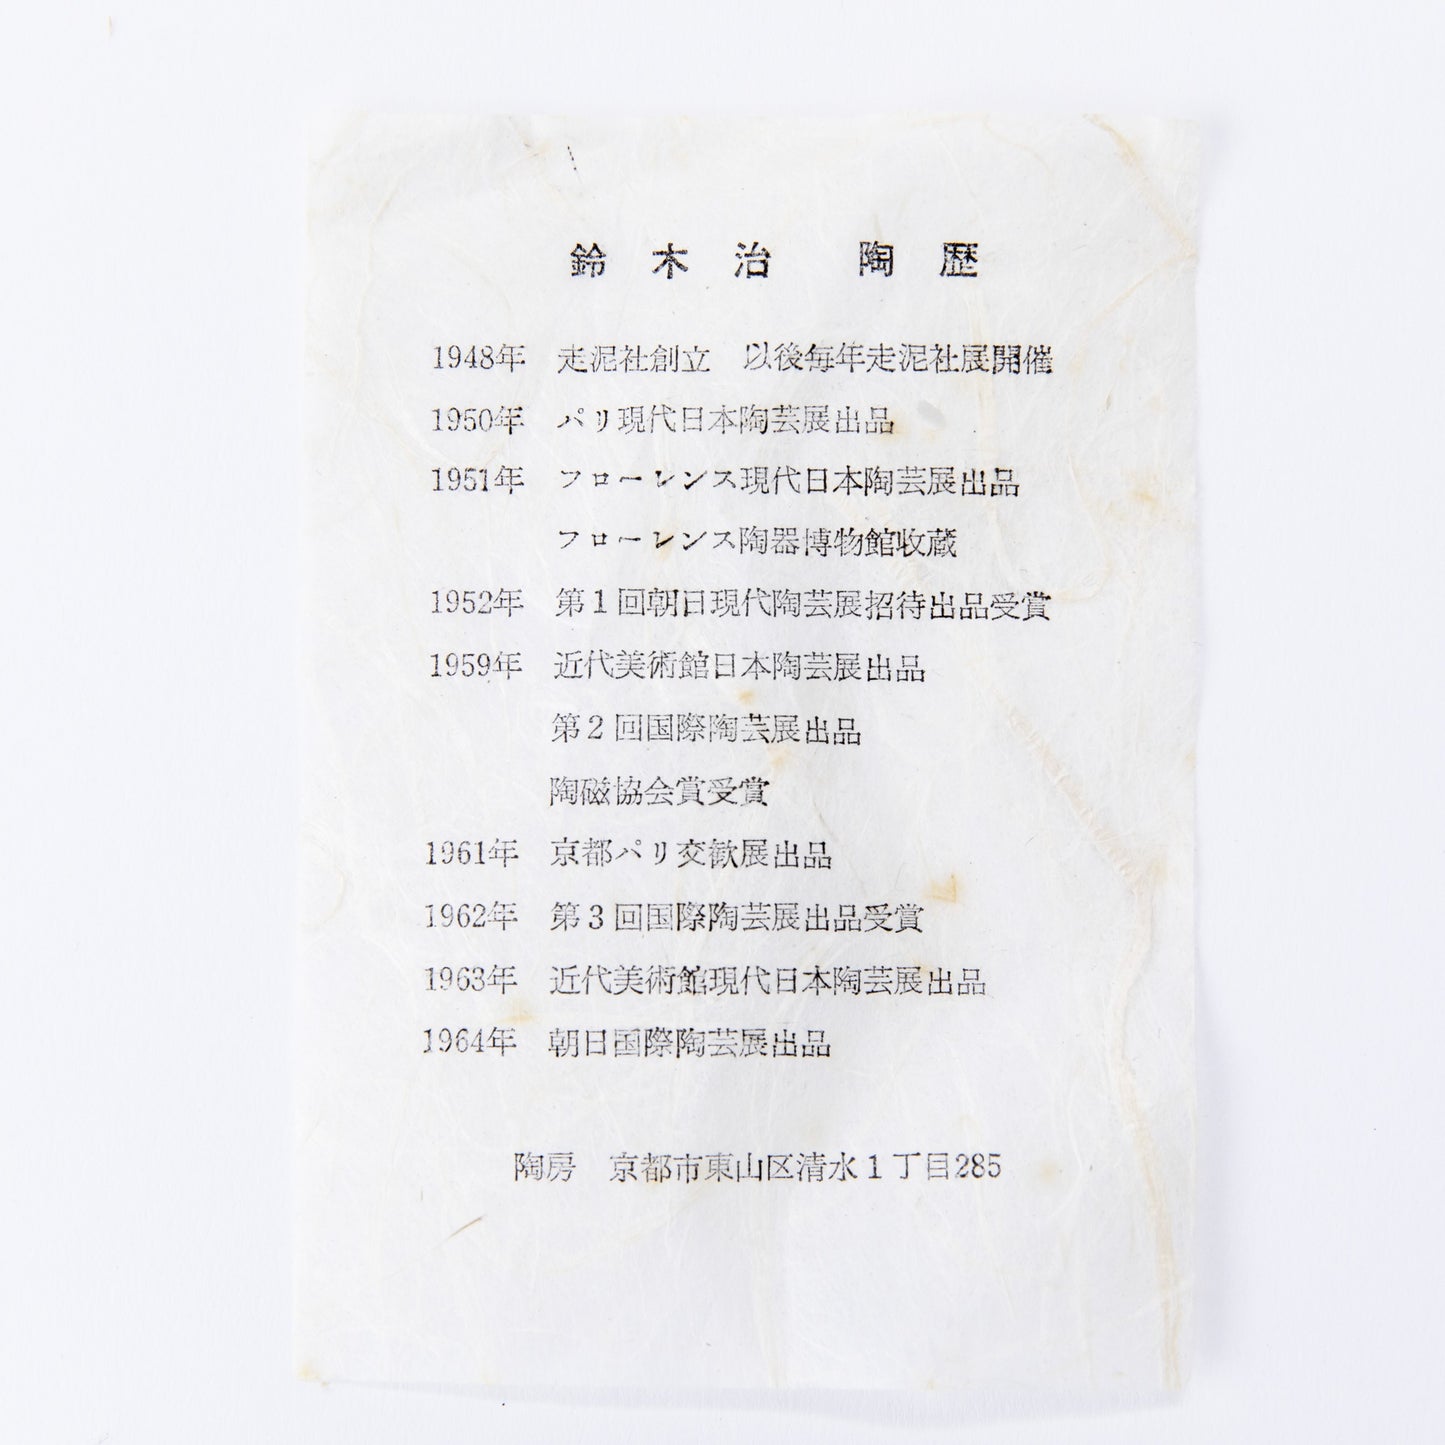 鈴木治　陶歴
1948年　走泥社創立　以後毎年走泥社展開催
1950年　パリ現代日本陶芸展出品
1951年　フローレンス現代日本陶芸展出品
フローレンス陶器博物館收蔵
1952年　第1回朝日現代陶芸展招待出品受賞
1959年　近代美術館日本陶芸展出品
第2回国際陶芸展出品
陶磁協会賞受賞
1961年　京都パリ交歓展出品
1962年　第3回国際陶芸展出品受賞
1963年　近代美術館現代日本陶芸展出品
1964年　朝日国際陶芸展出品
陶房　京都市東山区清水1丁目285